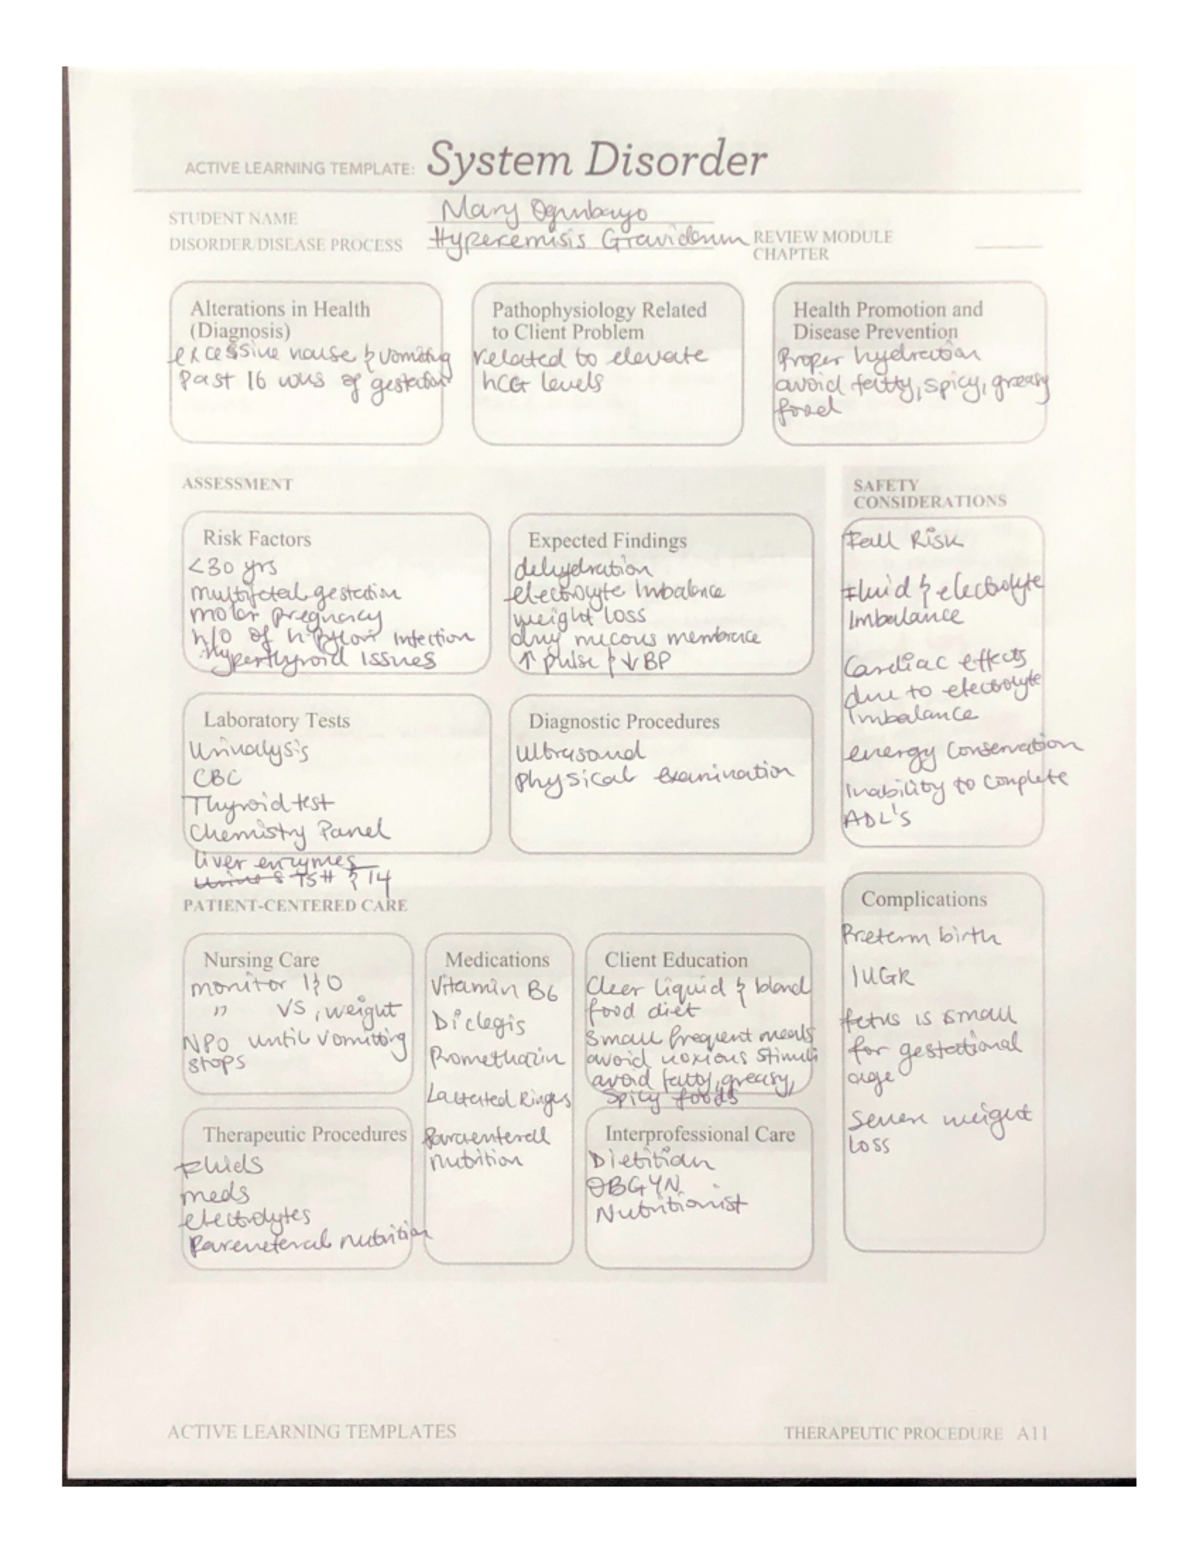 ACTIVE LEARNING TEMPLATE: System Disorder
STUDENT NAME Mary Ogunbayo
DISORDER/DISEASE PROCESS Hyperemisis Gravidarum REVIEW MODULE CHAPTER
Alterations in Health
(Diagnosis)
excessive nause & vomiting
Past 16 wks of gestation
Pathophysiology Related
to Client Problem
related to elevate
hCG levels
Health Promotion and
Disease Prevention
Proper hydration
avoid fatty, spicy, greasy
food
ASSESSMENT
Risk Factors
<30 yrs
multifetal gestation
molar pregnancy
h/o of h.pylori Infection
hyperthyroid Issues
Expected Findings
dehydration
electrolyte Imbalance
weight loss
dry mucous membrance
↑ pulse & ↓ BP
Laboratory Tests
Urinalysis
CBC
Thyroid test
Chemistry Panel
liver enzymes
TSH & T4
Diagnostic Procedures
Ultrasound
Physical examination
SAFETY
CONSIDERATIONS
Fall Risk
Fluid & electrolyte
Imbalance
Cardiac effects
due to electrolyte
Imbalance
energy Conservation
Inability to complete
ADL's
PATIENT-CENTERED CARE
Nursing Care
monitor I&O
" VS, weight
NPO until vomitting
stops
Medications
Vitamin B6
Diclegis
Promethazin
Lactated Ringers
Paraenterell
nutrition
Client Education
Clear liquid & bland
food diet
Small frequent meals
avoid noxious Stimuli
avoid fatty, greasy,
Spicy foods
Therapeutic Procedures
Fluids
meds
electrolytes
Pareneteral nutrition
Interprofessional Care
Dietitian
OBGYN
Nutritionist
Complications
Preterm birth
IUGR
fetus is small
for gestational
age
Severe weight
loss
ACTIVE LEARNING TEMPLATES
THERAPEUTIC PROCEDURE A11